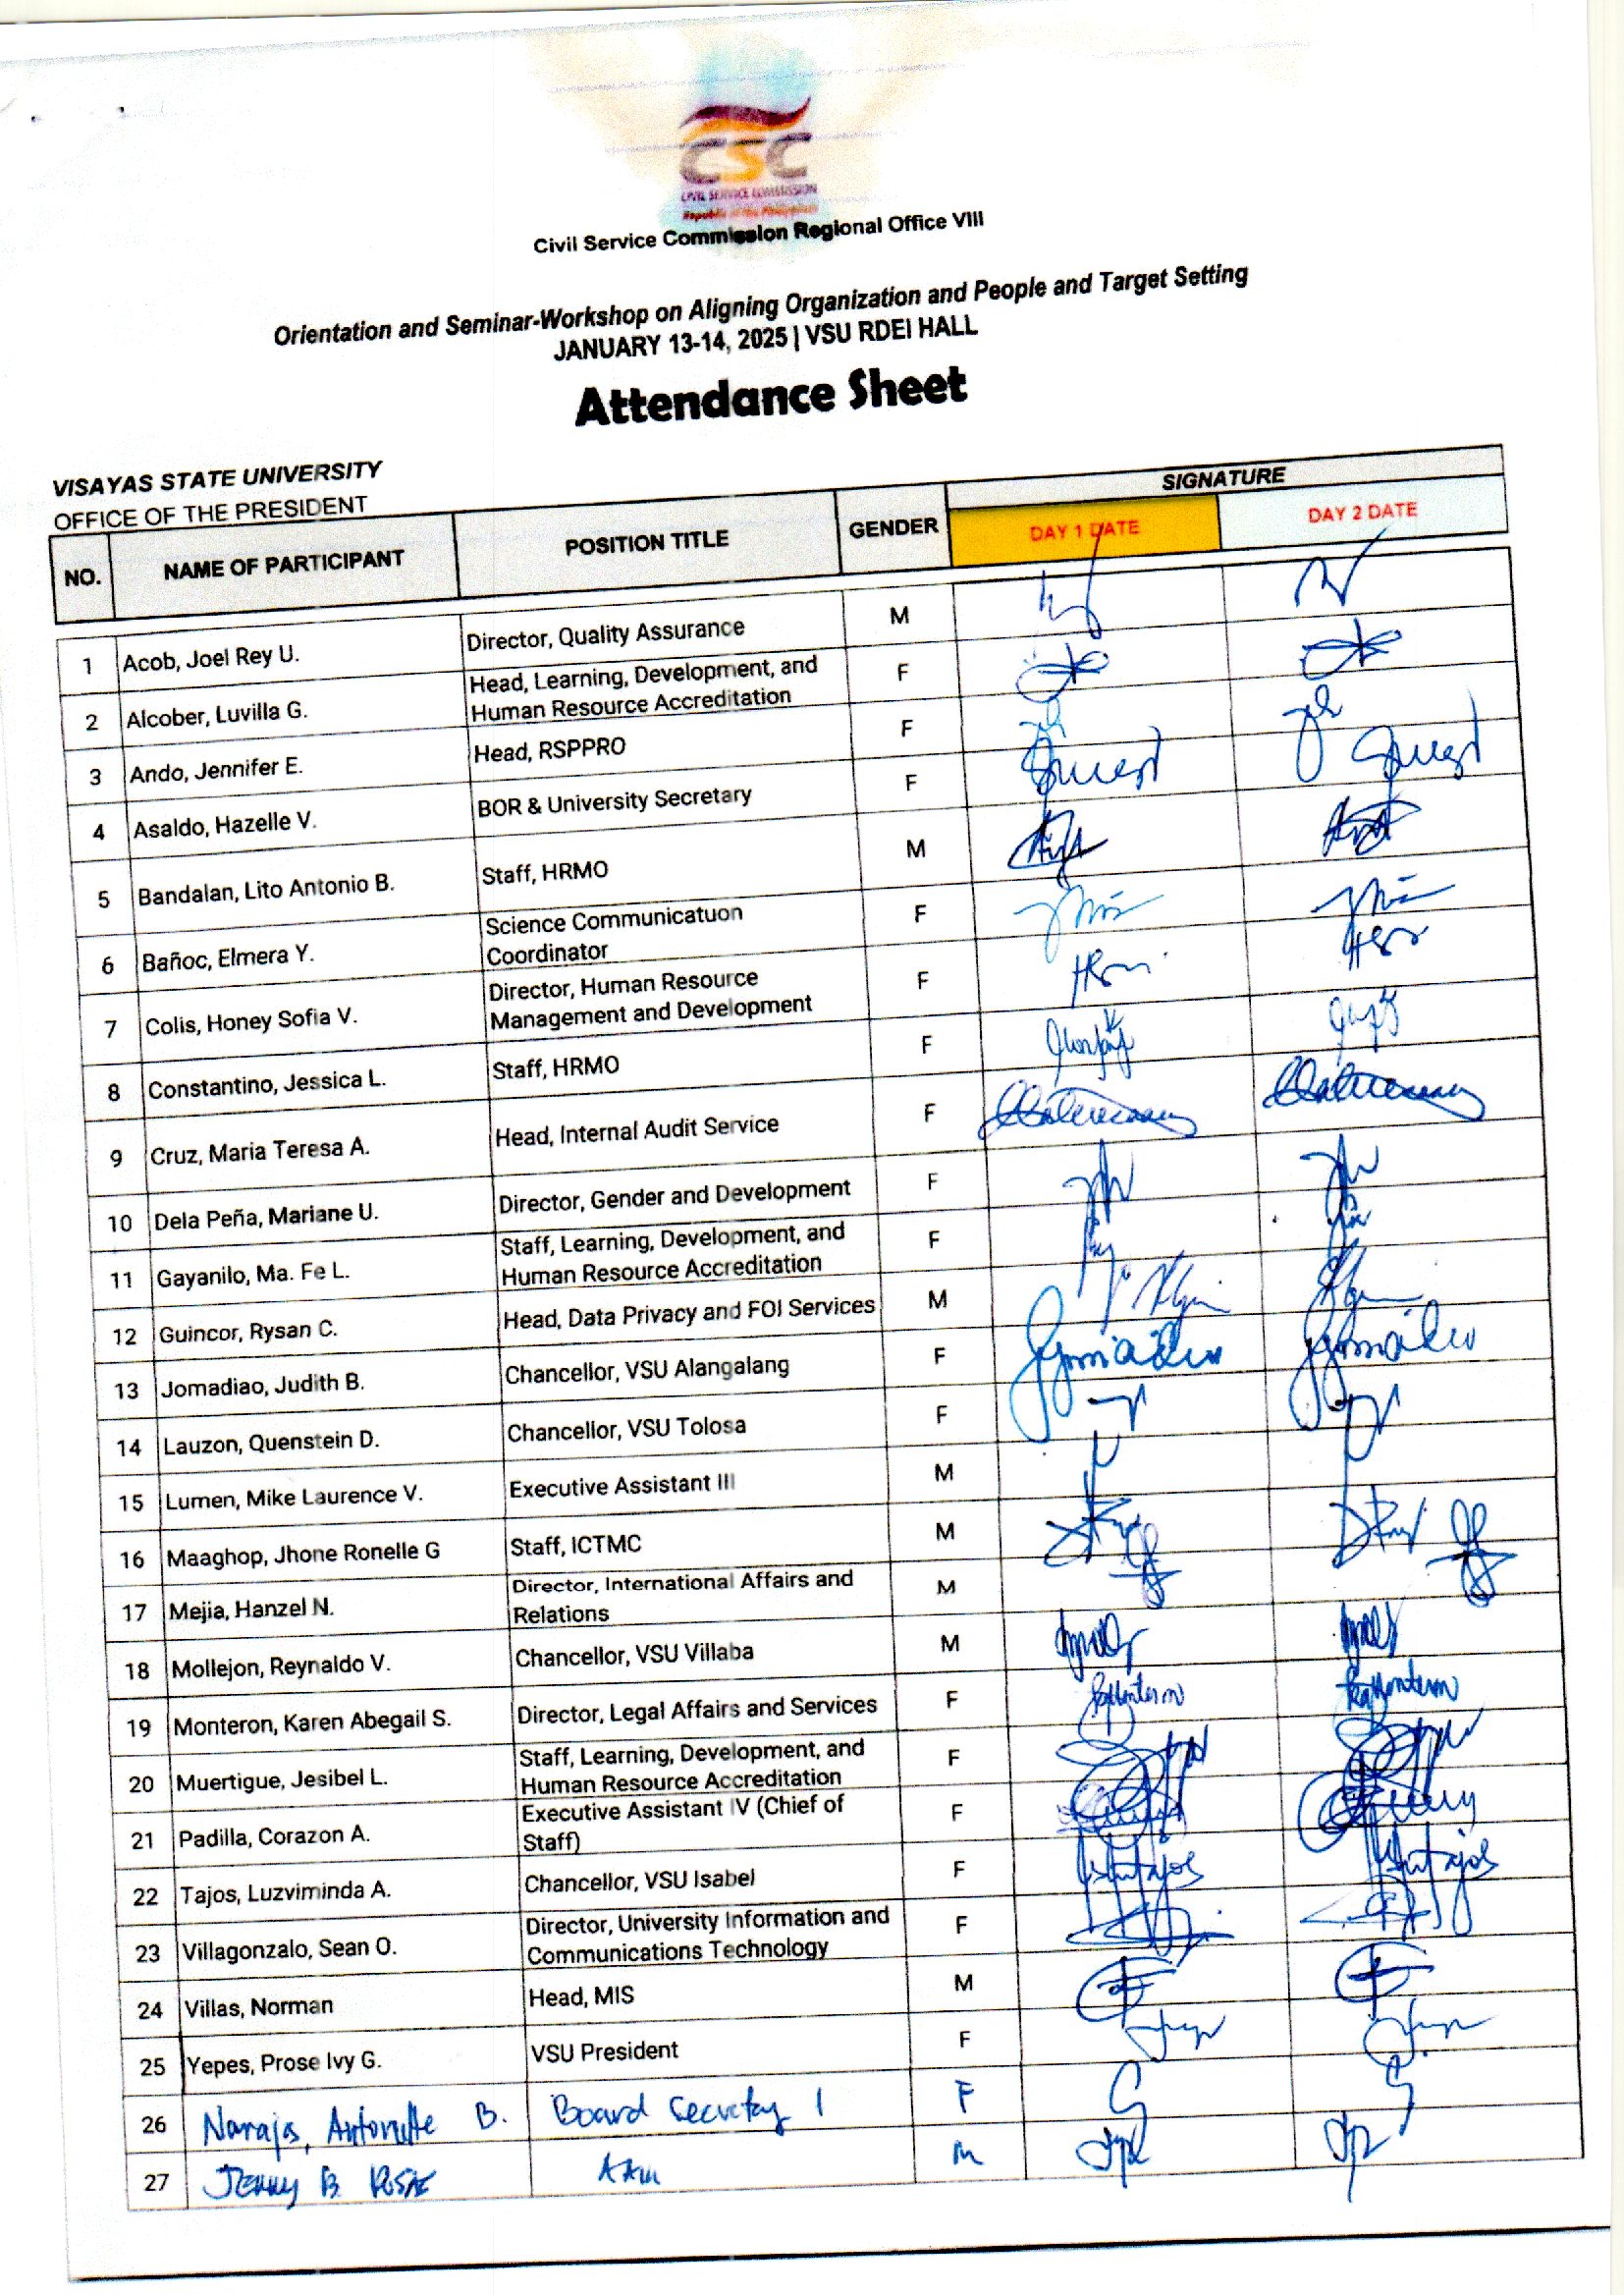 CSC
CIVIL SERVICE COMMISSION
Republic of the Philippines
Civil Service Commission Regional Office VIII
Orientation and Seminar-Workshop on Aligning Organization and People and Target Setting
JANUARY 13-14, 2025 | VSU RDEI HALL
Attendance Sheet
VISAYAS STATE UNIVERSITY
OFFICE OF THE PRESIDENT
NO. NAME OF PARTICIPANT POSITION TITLE GENDER SIGNATURE
DAY 1 DATE DAY 2 DATE
1 Acob, Joel Rey U. Director, Quality Assurance M
2 Alcober, Luvilla G. Head, Learning, Development, and
Human Resource Accreditation F
3 Ando, Jennifer E. Head, RSPPRO F
4 Asaldo, Hazelle V. BOR & University Secretary F
5 Bandalan, Lito Antonio B. Staff, HRMO M
6 Bañoc, Elmera Y. Science Communicatuon
Coordinator F
7 Colis, Honey Sofia V. Director, Human Resource
Management and Development F
8 Constantino, Jessica L. Staff, HRMO F
9 Cruz, Maria Teresa A. Head, Internal Audit Service F
10 Dela Peña, Mariane U. Director, Gender and Development F
11 Gayanilo, Ma. Fe L. Staff, Learning, Development, and
Human Resource Accreditation F
12 Guincor, Rysan C. Head, Data Privacy and FOI Services M
13 Jomadiao, Judith B. Chancellor, VSU Alangalang F
14 Lauzon, Quenstein D. Chancellor, VSU Tolosa F
15 Lumen, Mike Laurence V. Executive Assistant III M
16 Maaghop, Jhone Ronelle G Staff, ICTMC M
17 Mejia, Hanzel N. Director, International Affairs and
Relations M
18 Mollejon, Reynaldo V. Chancellor, VSU Villaba M
19 Monteron, Karen Abegail S. Director, Legal Affairs and Services F
20 Muertigue, Jesibel L. Staff, Learning, Development, and
Human Resource Accreditation F
21 Padilla, Corazon A. Executive Assistant IV (Chief of
Staff) F
22 Tajos, Luzviminda A. Chancellor, VSU Isabel F
23 Villagonzalo, Sean O. Director, University Information and
Communications Technology F
24 Villas, Norman Head, MIS M
25 Yepes, Prose Ivy G. VSU President F
26 Antonette B. Board Secretary 1 F
27 B. M